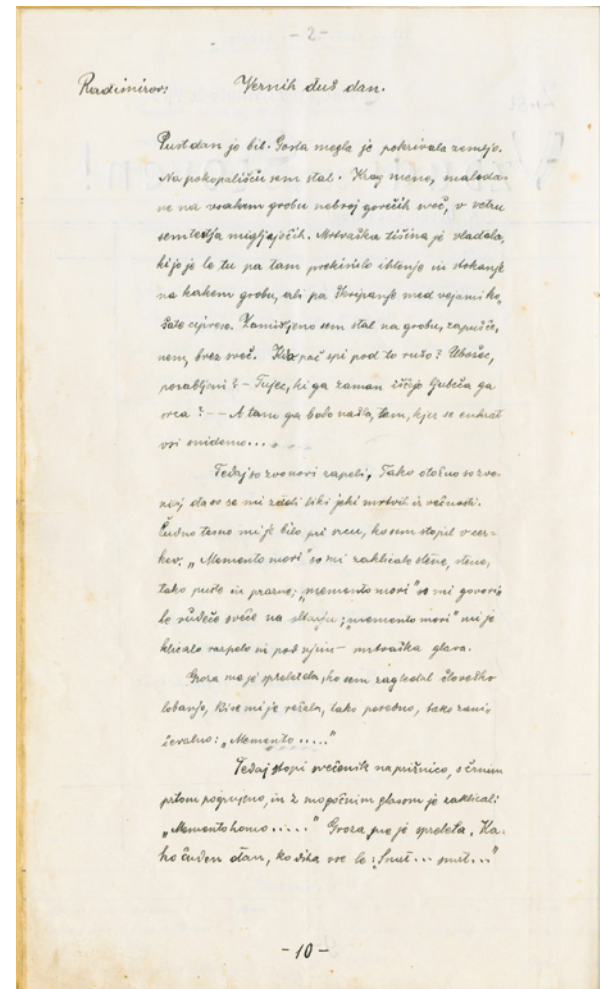 - 2 -
Radimirov: Vernih duš dan.
Pust dan je bil. Gosta megla je pokrivala zemljo.
Na pokopališču sem stal. Krog mene, malodan
ne na vsakem grobu nebroj gorečih sveč, v vetru
semtertja migljajočih. Mrtvaška tišina je vladala,
ki jo je le tu pa tam prekinilo ihtenje in stokanje
na kakem grobu, ali pa škripanje med vejami ko-
šate ciprese. Zamišljeno sem stal na grobu, zapušče-
nem, brez sveč. Kdo pač spi pod to rušo? Ubožec,
pozabljeni? - Tujec, ki ga zaman iščejo ljubeča ga
srca? - - A tam ga bodo našla, tam, kjer se enkrat
vsi snidemo...
Tedaj so zvonovi zapeli. Tako otožno so zvo-
nili, da so se mi zdeli kiki jeki mrtvih iz večnosti.
Čudno tesno mi je bilo pri srcu, ko sem stopil v cer-
kev. „Memento mori" so mi zaklicale stene, stene,
tako puste in prazne; „memento mori" so mi govoril
le rudeče sveče na oltarju; „memento mori" mi je
klicalo razpelo in pod njim - mrtvaška glava.
Groza me je spreletela, ko sem zagledal človeško
lobanjo, ki se mi je režala, tako porodno, tako zani-
čevalno: „Memento ....."
Tedaj stopi svečenik na prižnico, s črnim
prtom pogrnjeno, in z mogočnim glasom je zaklical:
„Memento homo ....." Groza me je spreletela. Ka-
ko čuden dan, ko diha vse le: „Smrt... smrt..."
- 10 -